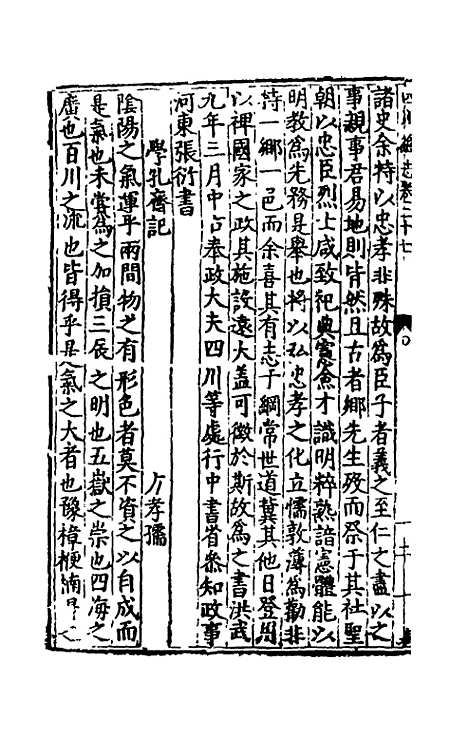 四川總志卷二十七
諸史余特以忠孝非殊故為臣子者義之至仁之盡以之
事親事君易地則皆然且古者鄉先生歿而祭于其社聖
朝以忠臣烈士咸致祀典憲僉才識明粹熟諳憲體能以
明教為先務是舉也將以弘忠孝之化立懦敦薄為勸非
特一鄉一邑而余喜其有志于綱常世道冀其他日登用
以裨國家之政其施設遠大蓋可徵於斯故為之書洪武
九年三月中占奉政大夫四川等處行中書省叅知政事
河東張衍書
學孔齋記 方孝孺
陰陽之氣運乎兩間物之有形色者莫不資之以自成而
是氣也未嘗為之加損三辰之明也五嶽之崇也四海之
廣也百川之流也皆得乎是氣之大者也豫樟楩